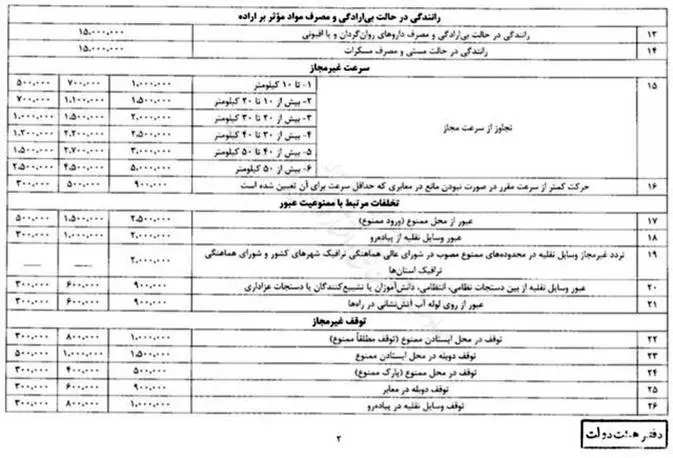 رانندگی در حالت بی‌ارادگی و مصرف مواد مؤثر بر اراده
۱۳ رانندگی در حالت بی‌ارادگی و مصرف داروهای روان‌گردان و یا افیونی ۱۵.۰۰۰.۰۰۰
۱۴ رانندگی در حالت مستی و مصرف مسکرات ۱۵.۰۰۰.۰۰۰
سرعت غیرمجاز
۱۵ تجاوز از سرعت مجاز
۱- تا ۱۰ کیلومتر ۱.۰۰۰.۰۰۰ ۷۰۰.۰۰۰ ۵۰۰.۰۰۰
۲- بیش از ۱۰ تا ۲۰ کیلومتر ۱.۵۰۰.۰۰۰ ۱.۱۰۰.۰۰۰ ۷۰۰.۰۰۰
۳- بیش از ۲۰ تا ۳۰ کیلومتر ۲.۰۰۰.۰۰۰ ۱.۵۰۰.۰۰۰ ۱.۰۰۰.۰۰۰
۴- بیش از ۳۰ تا ۴۰ کیلومتر ۲.۵۰۰.۰۰۰ ۲.۲۰۰.۰۰۰ ۱.۲۰۰.۰۰۰
۵- بیش از ۴۰ تا ۵۰ کیلومتر ۳.۰۰۰.۰۰۰ ۲.۷۰۰.۰۰۰ ۱.۵۰۰.۰۰۰
۶- بیش از ۵۰ کیلومتر ۵.۰۰۰.۰۰۰ ۴.۵۰۰.۰۰۰ ۲.۵۰۰.۰۰۰
۱۶ حرکت کمتر از سرعت مقرر در صورت نبودن مانع در معابری که حداقل سرعت برای آن تعیین شده است ۹۰۰.۰۰۰ ۵۰۰.۰۰۰ ۳۰۰.۰۰۰
تخلفات مرتبط با ممنوعیت عبور
۱۷ عبور از محل ممنوع (ورود ممنوع) ۲.۵۰۰.۰۰۰ ۱.۵۰۰.۰۰۰ ۵۰۰.۰۰۰
۱۸ عبور وسایل نقلیه از پیاده‌رو ۲.۰۰۰.۰۰۰ ۱.۰۰۰.۰۰۰ ۳۰۰.۰۰۰
۱۹ تردد غیرمجاز وسایل نقلیه در محدوده‌های ممنوع مصوب در شورای عالی هماهنگی ترافیک شهرهای کشور و شورای هماهنگی
ترافیک استان‌ها ۲.۰۰۰.۰۰۰ — —
۲۰ عبور وسایل نقلیه از بین دستجات نظامی، انتظامی، دانش‌آموزان یا تشییع‌کنندگان یا دستجات عزاداری ۹۰۰.۰۰۰ ۶۰۰.۰۰۰ ۳۰۰.۰۰۰
۲۱ عبور از روی لوله آب آتش‌نشانی در راه‌ها ۹۰۰.۰۰۰ ۶۰۰.۰۰۰ ۳۰۰.۰۰۰
توقف غیرمجاز
۲۲ توقف در محل ایستادن ممنوع (توقف مطلقاً ممنوع) ۱.۰۰۰.۰۰۰ ۸۰۰.۰۰۰ ۳۰۰.۰۰۰
۲۳ توقف دوبله در محل ایستادن ممنوع ۱.۵۰۰.۰۰۰ ۱.۰۰۰.۰۰۰ ۵۰۰.۰۰۰
۲۴ توقف در محل ممنوع (پارک ممنوع) ۵۰۰.۰۰۰ ۴۰۰.۰۰۰ ۳۰۰.۰۰۰
۲۵ توقف دوبله در معابر ۹۰۰.۰۰۰ ۶۰۰.۰۰۰ ۳۰۰.۰۰۰
۲۶ توقف وسایل نقلیه در پیاده‌رو ۱.۰۰۰.۰۰۰ ۸۰۰.۰۰۰ ۳۰۰.۰۰۰
۲
دفتر هیئت دولت